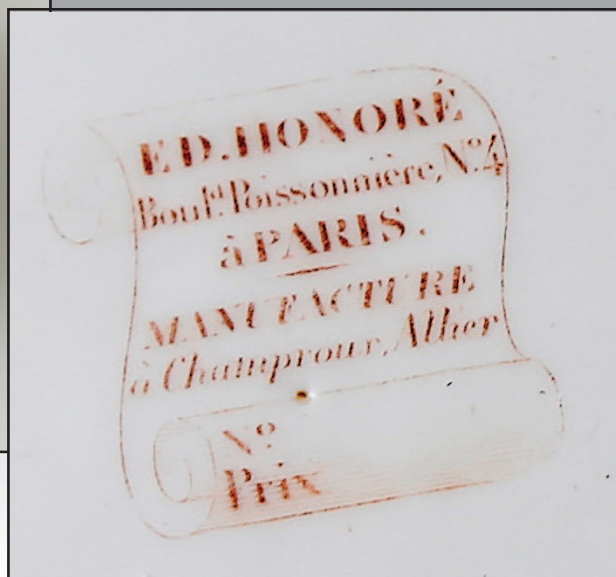 ED. HONORÉ
Boul.d Poissonnière, N.o 4
à PARIS.
MANUFACTURE
à Champroux, Allier
N.o
Prix